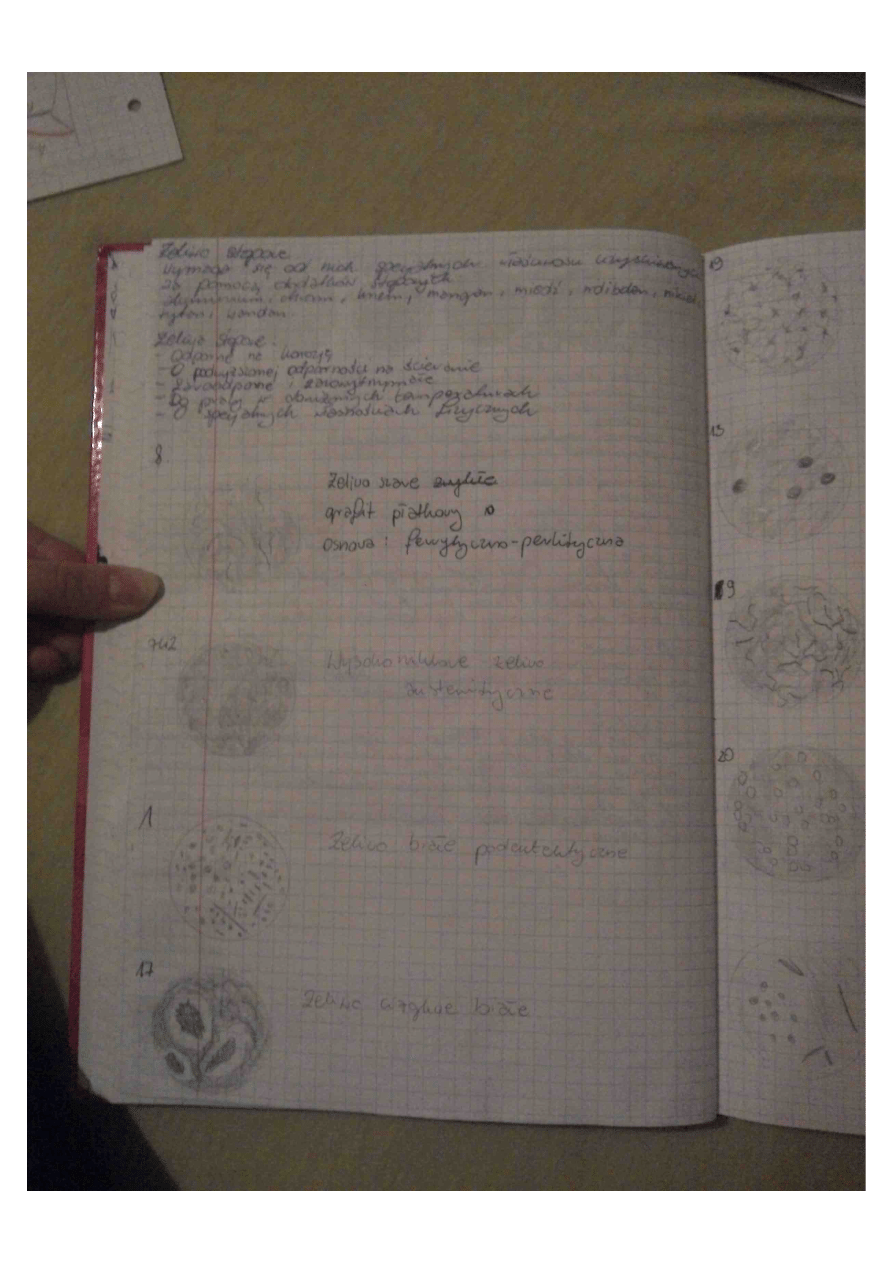 Żeliwo stopowe
Wymaga się od nich specjalnych właściwości uzyskiwanych
za pomocą dodatków stopowych
aluminium, chrom, krzem, mangan, miedź, molibden, nikiel,
tytan, wanad
Żeliwo stopowe:
- Odporne na korozję
- O podwyższonej odporności na ścieranie
- Żaroodporne i żarowytrzymałe
- Do pracy w obniżonych temperaturach
- O specjalnych własnościach fizycznych
8
Żeliwo szare zwykłe
grafit płatkowy
osnowa: ferrytyczno-perlityczna
Wysokoniklowe żeliwo
austenityczne
1
Żeliwo białe podeutektyczne
17
Żeliwo białe
13
19
20